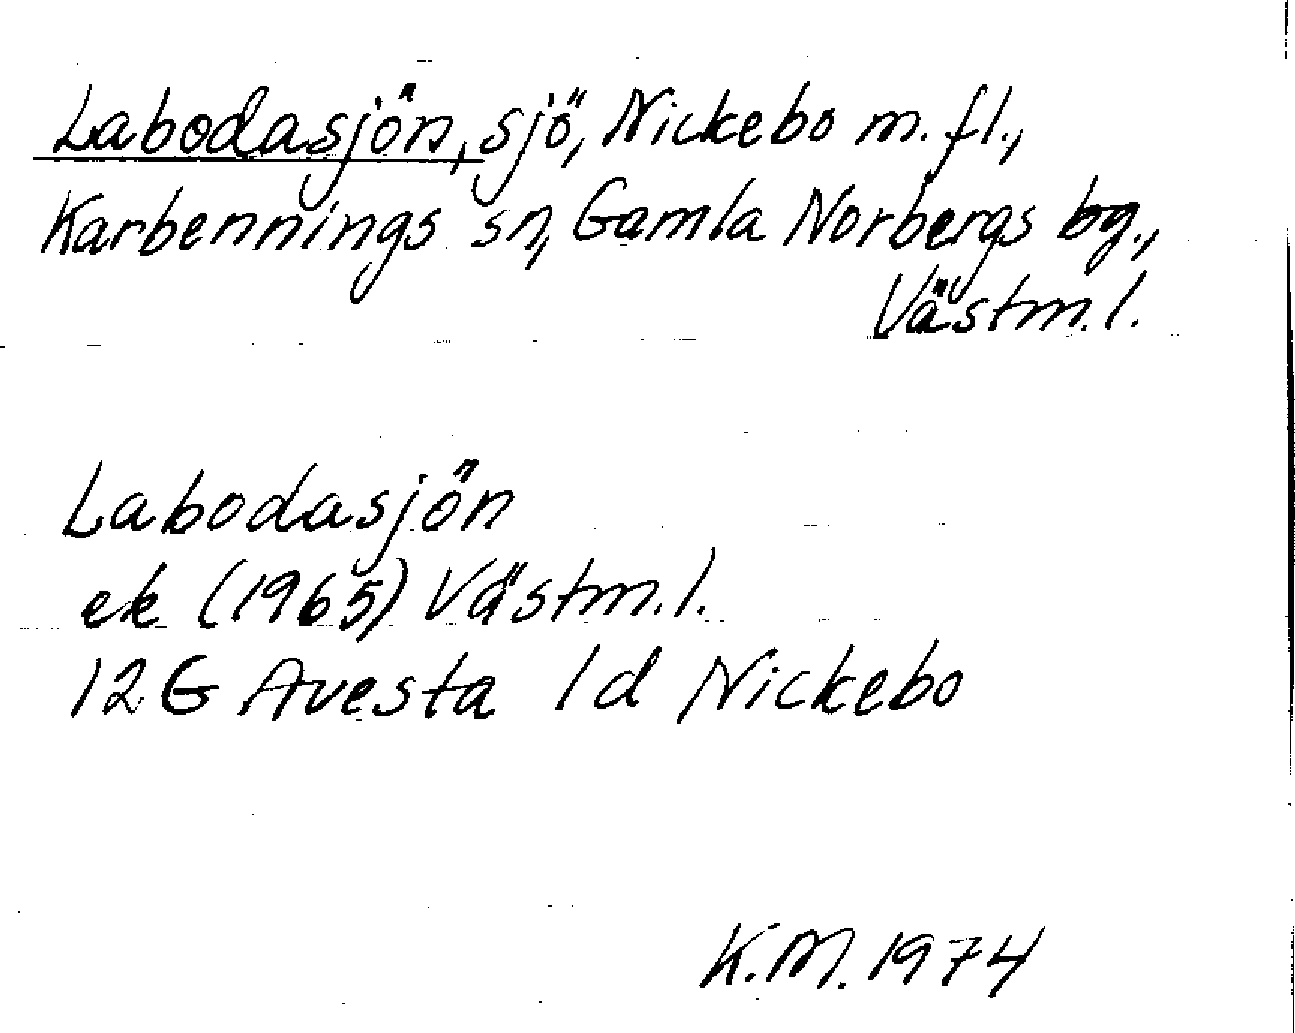 Labodasjön, sjö, Nickebo m.fl.,
Karbennings sn, Gamla Norbergs bg.,
Västm.l.
Labodasjön
ek (1965) Västm.l.
12G Avesta 1d Nickebo
K.M. 1974